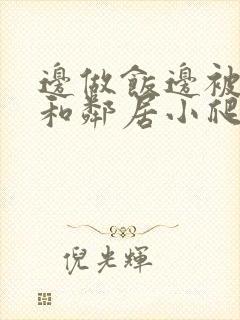 邊做飯邊被
和鄰居小爬
倪光輝